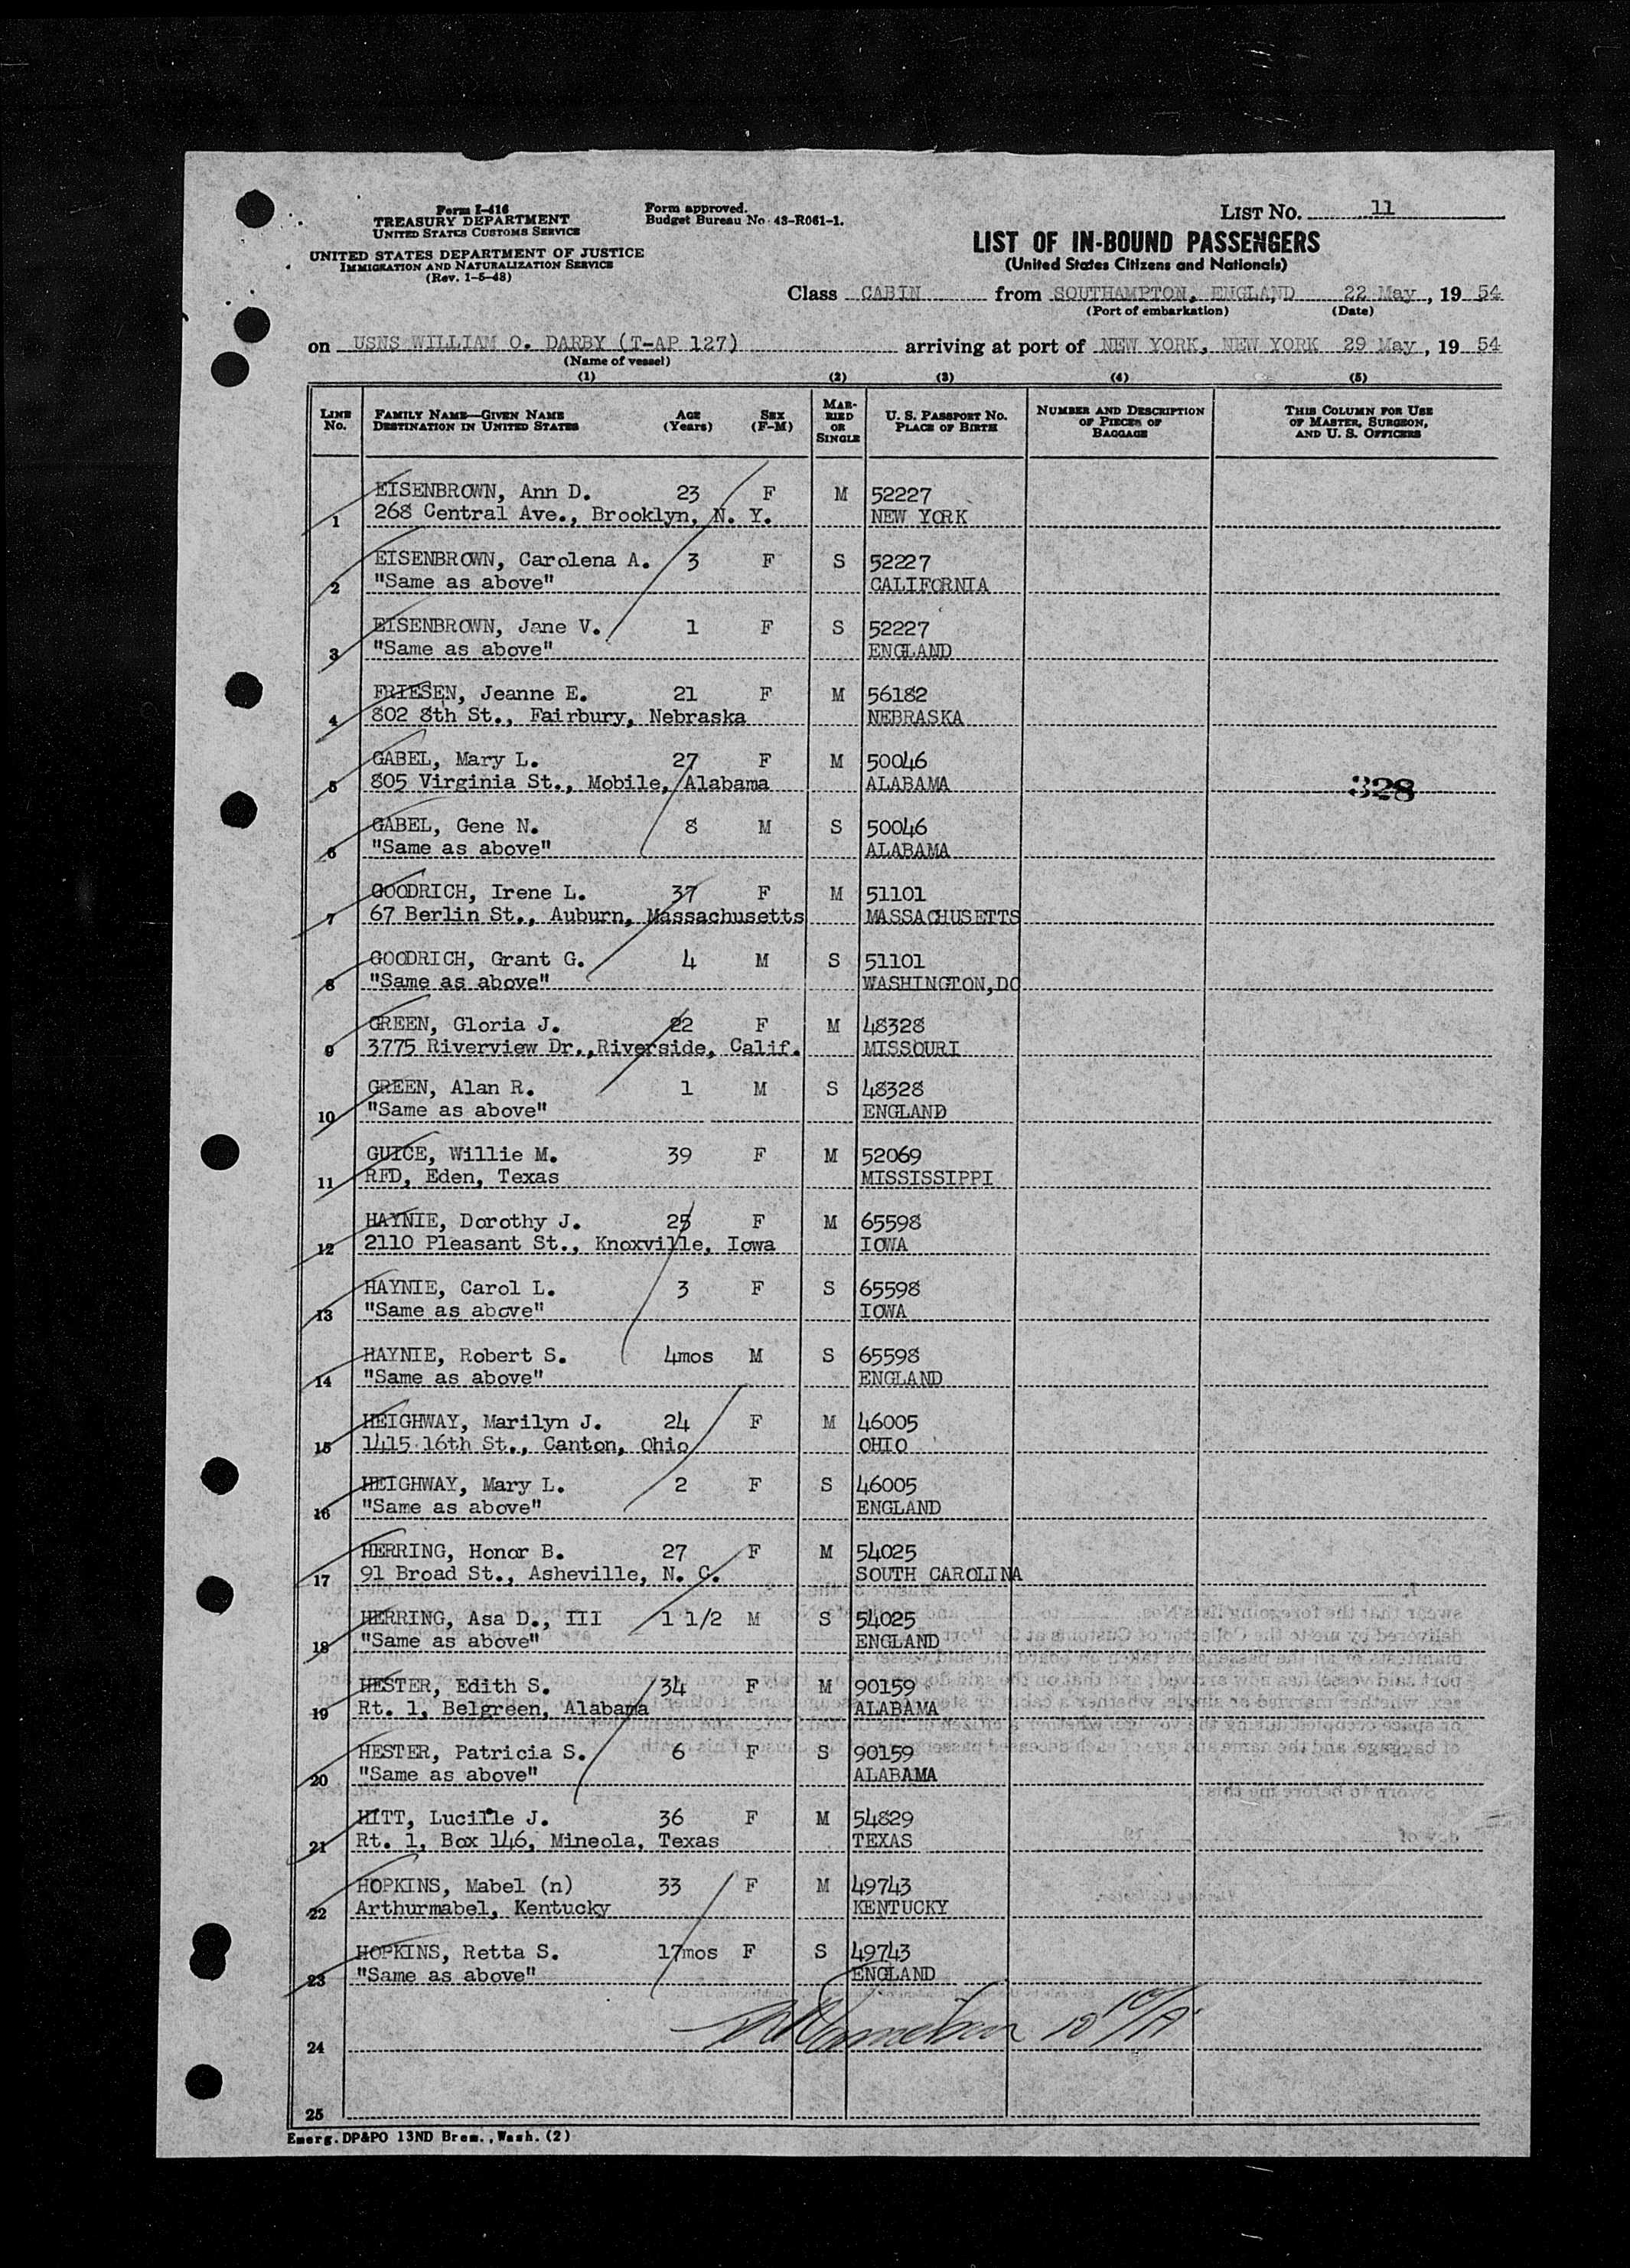 Form I-416
TREASURY DEPARTMENT
UNITED STATES CUSTOMS SERVICE
UNITED STATES DEPARTMENT OF JUSTICE
IMMIGRATION AND NATURALIZATION SERVICE
(Rev. 1-5-48)
Form approved.
Budget Bureau No. 43-R061-1.
LIST No. 11
LIST OF IN-BOUND PASSENGERS
(United States Citizens and Nationals)
Class CABIN from SOUTHAMPTON, ENGLAND 22 May, 19 54
(Port of embarkation) (Date)
on USNS WILLIAM O. DARBY (T-AP 127) arriving at port of NEW YORK, NEW YORK 29 May, 19 54
(Name of vessel)
(1) (2) (3) (4) (5)
LINE No. FAMILY NAME—GIVEN NAME DESTINATION IN UNITED STATES AGE (Years) SEX (F-M) MARRIED OR SINGLE U. S. PASSPORT No. PLACE OF BIRTH NUMBER AND DESCRIPTION OF PIECES OF BAGGAGE THIS COLUMN FOR USE OF MASTER, SURGEON, AND U. S. OFFICERS
EISENBROWN, Ann D. 23 F M 52227
1 268 Central Ave., Brooklyn, N. Y. NEW YORK
EISENBROWN, Carolena A. 3 F S 52227
2 "Same as above" CALIFORNIA
EISENBROWN, Jane V. 1 F S 52227
3 "Same as above" ENGLAND
FRIESEN, Jeanne E. 21 F M 56182
4 802 8th St., Fairbury, Nebraska NEBRASKA
GABEL, Mary L. 27 F M 50046
5 805 Virginia St., Mobile, Alabama ALABAMA 328
GABEL, Gene N. 8 M S 50046
6 "Same as above" ALABAMA
GOODRICH, Irene L. 37 F M 51101
7 67 Berlin St., Auburn, Massachusetts MASSACHUSETTS
GOODRICH, Grant G. 4 M S 51101
8 "Same as above" WASHINGTON,DC
GREEN, Gloria J. 22 F M 48328
9 3775 Riverview Dr.,Riverside, Calif. MISSOURI
GREEN, Alan R. 1 M S 48328
10 "Same as above" ENGLAND
GUICE, Willie M. 39 F M 52069
11 RFD, Eden, Texas MISSISSIPPI
HAYNIE, Dorothy J. 25 F M 65598
12 2110 Pleasant St., Knoxville, Iowa IOWA
HAYNIE, Carol L. 3 F S 65598
13 "Same as above" IOWA
HAYNIE, Robert S. 4mos M S 65598
14 "Same as above" ENGLAND
HEIGHWAY, Marilyn J. 24 F M 46005
15 1415 16th St., Canton, Ohio OHIO
HEIGHWAY, Mary L. 2 F S 46005
16 "Same as above" ENGLAND
HERRING, Honor B. 27 F M 54025
17 91 Broad St., Asheville, N. C. SOUTH CAROLINA
HERRING, Asa D., III 1 1/2 M S 54025
18 "Same as above" ENGLAND
HESTER, Edith S. 34 F M 90159
19 Rt. 1, Belgreen, Alabama ALABAMA
HESTER, Patricia S. 6 F S 90159
20 "Same as above" ALABAMA
HITT, Lucille J. 36 F M 54829
21 Rt. 1, Box 146, Mineola, Texas TEXAS
HOPKINS, Mabel (n) 33 F M 49743
22 Arthurmabel, Kentucky KENTUCKY
HOPKINS, Retta S. 17mos F S 49743
23 "Same as above" ENGLAND
24
25
Emerg. DP&PO 13ND Brem., Wash. (2)